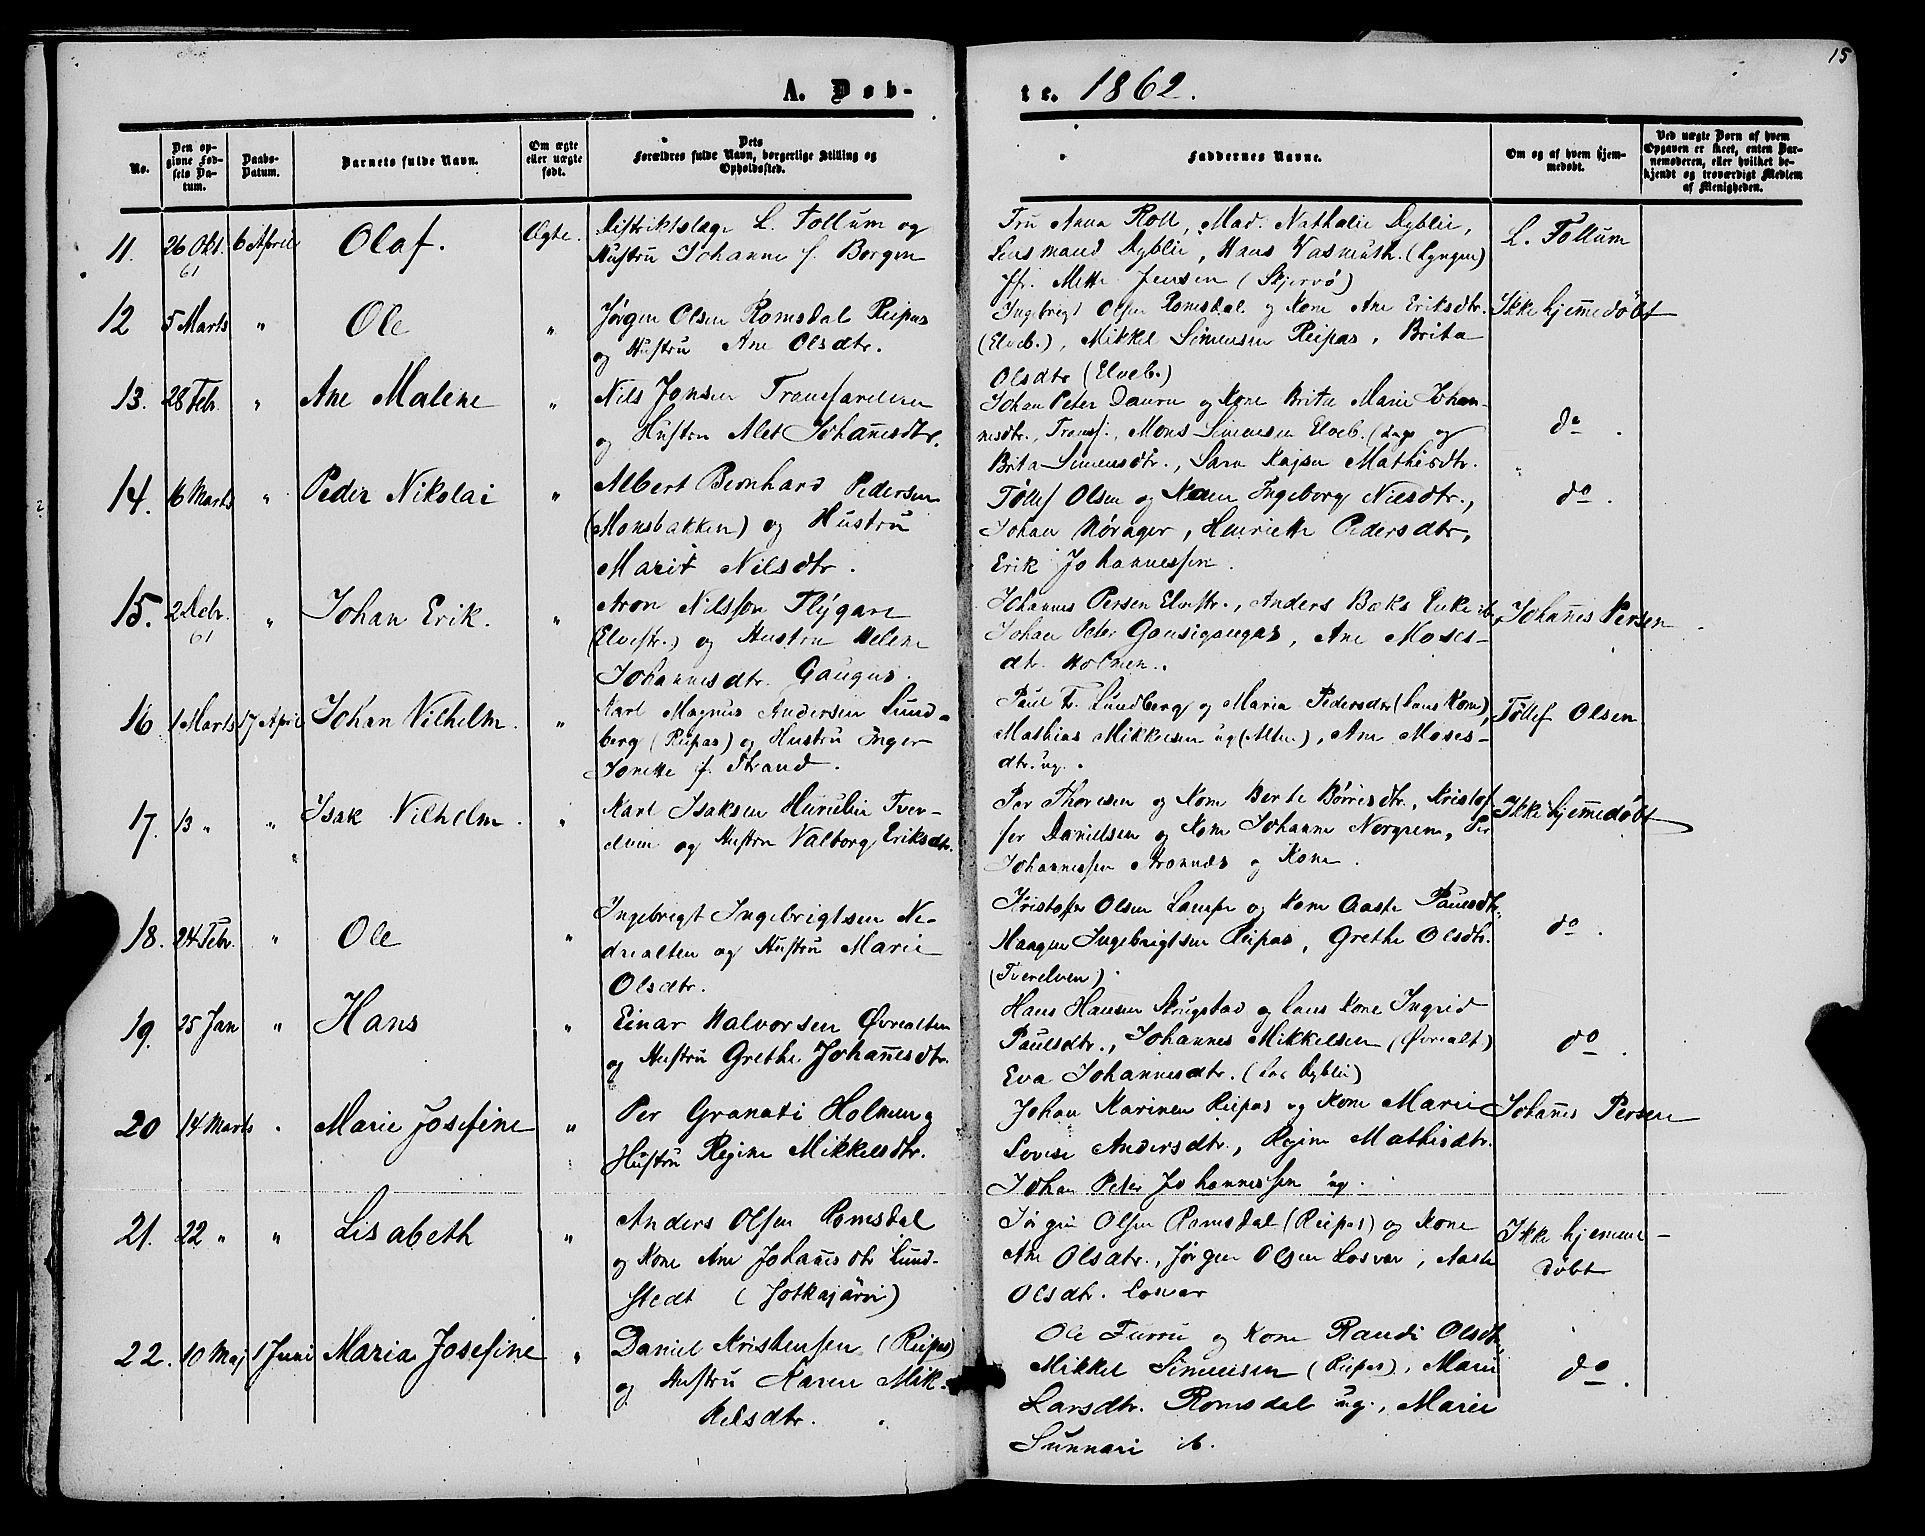 15
A. Døb-
te. 1862.
No.
Den opgivne Fødsels Datum.
Daabs-Datum.
Barnets fulde Navn.
Om ægte eller uægte født.
Dets Forældres fulde Navn, borgerlige Stilling og Opholdssted.
Faddernes Navne.
Om og af hvem hjemmedøbt.
Ved uægte Børn af hvem Opgaven er skeet, enten Barnemoderen, eller hvilket bekjendt og troværdigt Medlem af Menigheden.
11. 26 Okt. 61 6 April Olaf. Ægte.
Distriktslæge L. Follum og
Hustru Johanne f. Borgen
Fru Anna Roll, Mad. Nathalie Dyblie,
Lensmand Dyblie, Hans Vasmuth. (Lyngen)
Jfr. Mette Jensen (Skjervö)
L. Follum
12 5 Marts " Ole "
Jørgen Olsen Romsdal Reipas
og Hustru Ane Olsdtr.
Ingebrigt Olsen Romsdal og Kone Ane Eriksdtr.
(Elveb.), Mikkel Simensen Reipas, Brita
Olsdtr (Elveb.)
Ikke hjemmedöbt
13. 28 Febr. " Ane Malene "
Nils Jonsen Transfarelven
og Hustru Alet Johannesdtr.
Johan Peter Daura og Kone Brita Marie Johan-
nesdtr. Transf., Mons Simensen Elveb. og
Brita Simensdtr., Sara Kajsa Mathisdtr.
do.
14. 16 Marts " Peder Nikolai "
Albert Bernhard Pedersen
(Monsbakken) og Hustru
Marit Nilsdtr.
Töllef Olsen og Kone Ingeborg Nilsdtr.,
Johan Nørager, Henriette Pedersdtr,
Erik Johannessen.
do.
15. 2 Debr. 61 " Johan Erik. "
Aron Nilsson Flygare
(Elvestr.) og Hustru Helene
Johannesdtr. Gaugus.
Johannes Persen Elvestr., Anders Baks Enke ib.
Johan Peter, Ane Moses-
dtr. Holmen.
Johannes Persen
16. 1 Marts 17 April Johan Vilhelm. "
Karl Magnus Andersen Lund-
berg (Reipas) og Hustru Inger
Jonette f. Strand.
Paul F. Lundberg og Maria Pedersdtr (hans Kone),
Mathias Mikkelsen ug (Alten.), Ane Moses-
dtr. ug.
Töllef Olsen
17. 13 " " Isak Vilhelm. "
Karl Isaksen Huruliu Tver-
elven og Hustru Valborg Eriksdtr.
Per Thoresen og Kone Berte Börresdtr., Kristof-
fer Danielsen og Kone Johanne Norgren, Per
Johannessen Aronnæs og Kone.
Ikke hjemmedöbt
18. 24 Febr. " Ole "
Ingebrigt Ingebrigtsen Ne-
drealten og Hustru Marie
Olsdtr.
Kristofer Olsen Lampe og Kone Aaste Paulsdtr.
Haagen Ingebrigtsen Reipas, Grethe Olsdtr.
(Tverelven).
do.
19. 25 Jan " Hans "
Einar Halvorsen Øvrealten
og Hustru Grethe Johannesdtr.
Hans Hansen Skrugstad og hans Kone Ingrid
Paulsdtr., Johannes Mikkelsen (Øvrealt.)
Eva Johannesdtr. (hos Dyblie)
do.
20 14 Marts " Marie Josefine "
Per Granati Holmen og
Hustru Regine Mikkelsdtr.
Johan Karinen Reipas og Kone Marie
Lovise Andersdtr., Regine Mathisdtr.
Johan Peter Johannessen ug.
Johannes Persen
21. 22 " " Lisabeth "
Anders Olsen Romsdal
og Kone Ane Johannesdtr Lund-
stedt (Jotkajärvi)
Jörgen Olsen Romsdal (Reipas) og Kone
Ane Olsdtr., Jörgen Olsen Losvar, Aaste
Olsdtr. Losvar
Ikke hjemme-
döbt
22. 10 Maj 1 Juni Maria Josefine "
Daniel Kristensen (Reipas)
og Hustru Karen Mik-
kelsdtr.
Ole Furru og Kone Randi Olsdtr,
Mikkel Simensen (Reipas), Marie
Larsdtr. Romsdal ug., Marie
Sunnari ib.
do.